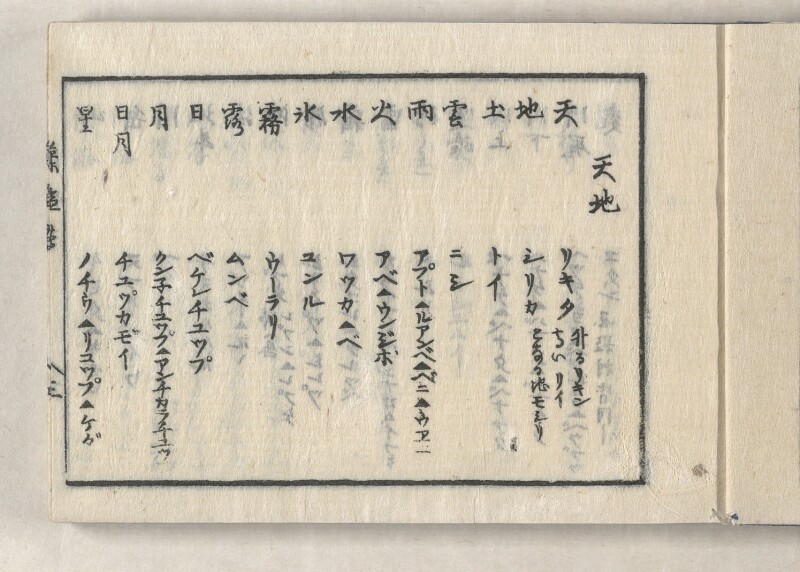 天地
天 リキタ 升るリキン
ちいリイ
地 シリカ となる地モシリ
土 トイ
雲 ニシ
雨 アプト▲ルアンベ▲ベニ▲ウヱニ
火 アベ▲ウンジボ
水 ワツカ▲ベ
氷 ユンル
霧 ウーラリ
露 ムンベ
日 ベケレチユツプ
月 クン子チユツプ▲アンチカラチユツ
日月 チユツプカモイ
星 ノチウ▲リコツプ▲ケダ